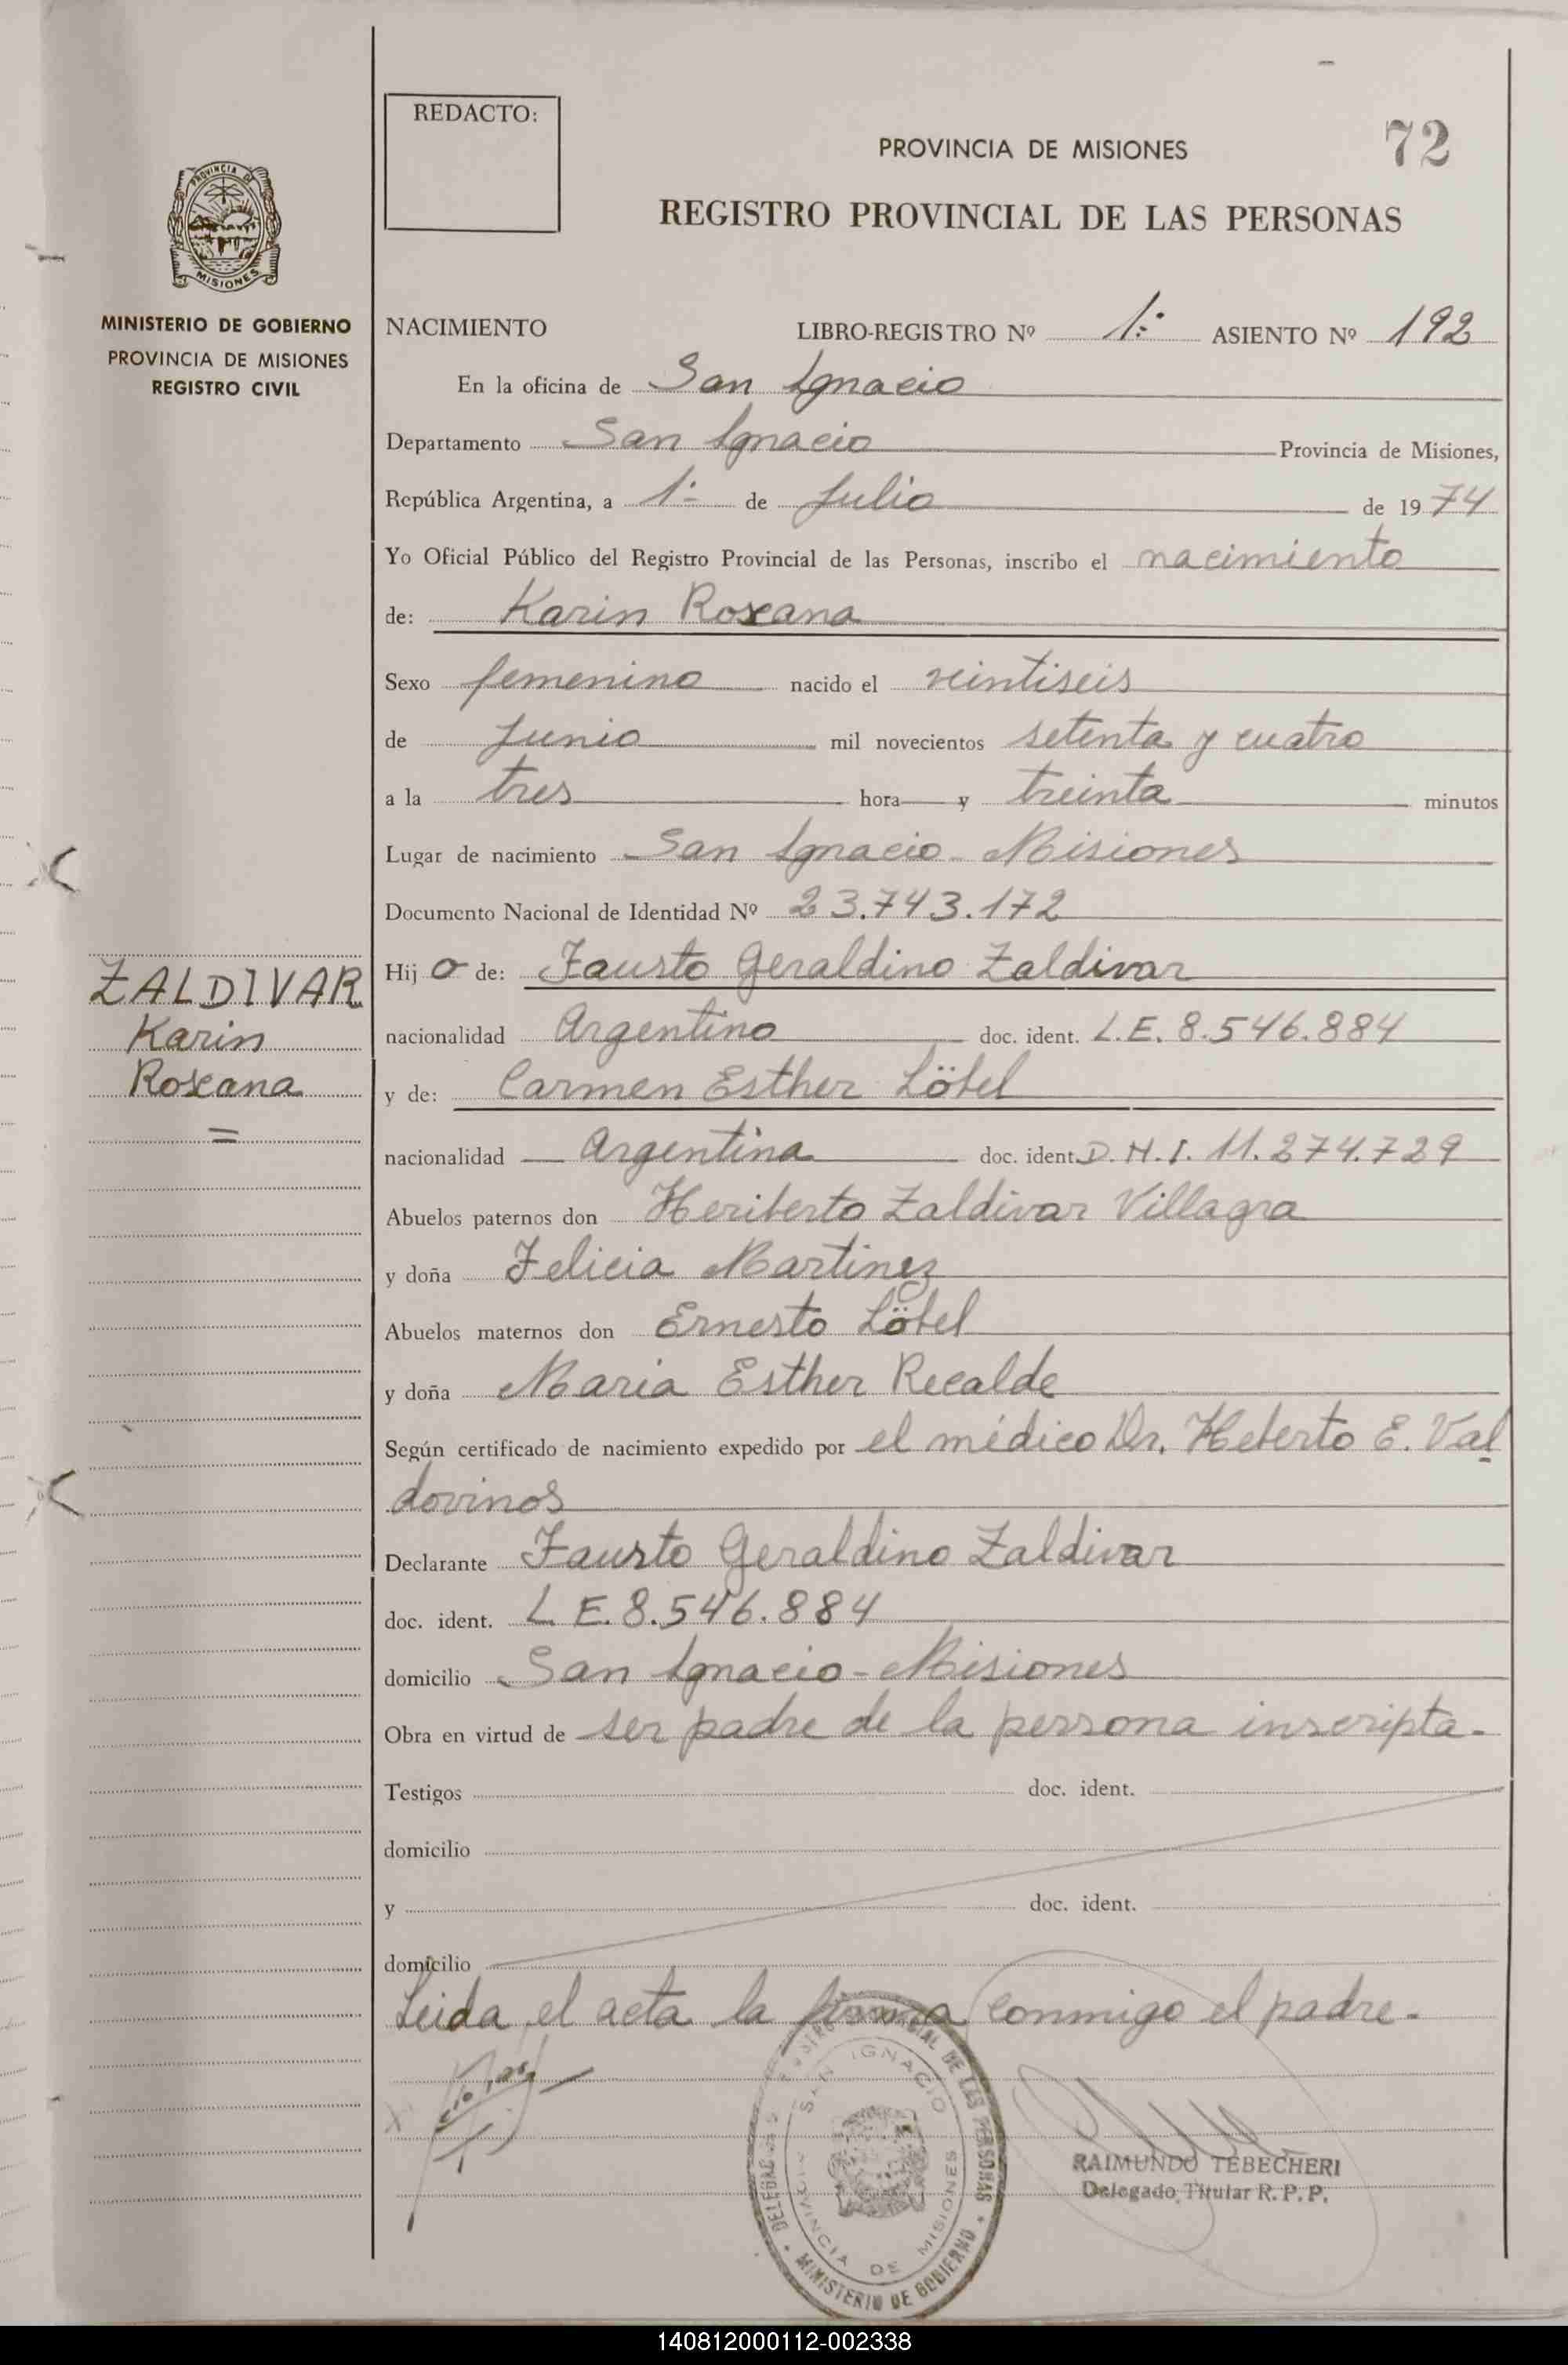 REDACTO:
PROVINCIA DE MISIONES
72
REGISTRO PROVINCIAL DE LAS PERSONAS
PROVINCIA DE
MISIONES
MINISTERIO DE GOBIERNO
PROVINCIA DE MISIONES
REGISTRO CIVIL
NACIMIENTO LIBRO-REGISTRO Nº 1º ASIENTO Nº 192
En la oficina de San Ignacio
Departamento San Ignacio Provincia de Misiones,
República Argentina, a 1º de Julio de 1974
Yo Oficial Público del Registro Provincial de las Personas, inscribo el nacimiento
de: Karin Roxana
Sexo femenino nacido el veintiseis
de Junio mil novecientos setenta y cuatro
a la tres hora y treinta minutos
Lugar de nacimiento San Ignacio - Misiones
Documento Nacional de Identidad Nº 23.743.172
ZALDIVAR
Karin
Roxana
=
Hij a de: Fausto Geraldino Zaldivar
nacionalidad Argentino doc. ident. L.E. 8.546.884
y de: Carmen Esther Löbel
nacionalidad Argentina doc. ident. D.N.I. 11.274.729
Abuelos paternos don Heriberto Zaldivar Villagra
y doña Felicia Martinez
Abuelos maternos don Ernesto Löbel
y doña Maria Esther Recalde
Según certificado de nacimiento expedido por el médico Dr. Heberto E. Val
dovinos
Declarante Fausto Geraldino Zaldivar
doc. ident. L.E. 8.546.884
domicilio San Ignacio - Misiones
Obra en virtud de ser padre de la persona inscripta.
Testigos doc. ident.
domicilio
y doc. ident.
domicilio
Leida el acta la firma conmigo el padre.
REGISTRO PROVINCIAL DE LAS PERSONAS
SAN IGNACIO
PROVINCIA DE MISIONES
MINISTERIO DE GOBIERNO
RAIMUNDO TEBECHERI
Delegado Titular R.P.P.
140812000112-002338